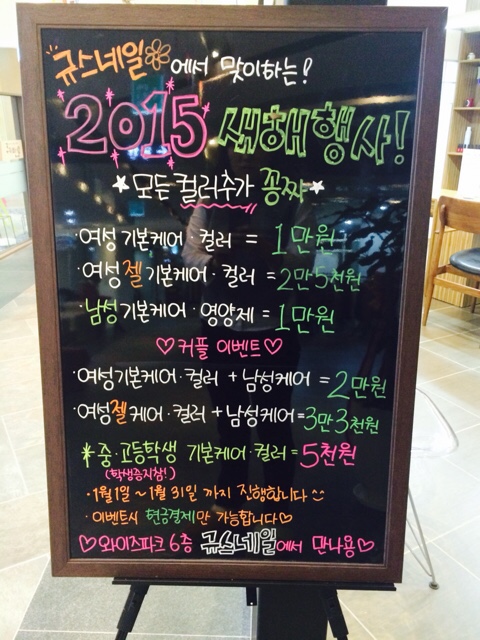 규스네일에서 맞이하는!
2015 새해행사!
★모든 컬러추가 꽁짜★
·여성 기본케어·컬러 = 1만원
·여성 젤 기본케어·컬러 = 2만5천원
·남성 기본케어·영양제 = 1만원
♡커플 이벤트♡
·여성기본케어·컬러 + 남성케어 = 2만원
·여성 젤 케어·컬러 + 남성케어 = 3만3천원
*중·고등학생 기본케어·컬러 = 5천원
(학생증지참!)
·1월1일 ~ 1월 31일 까지 진행합니다
·이벤트시 현금결제만 가능합니다♡
♡와이즈파크 6층 규스네일에서 만나용♡